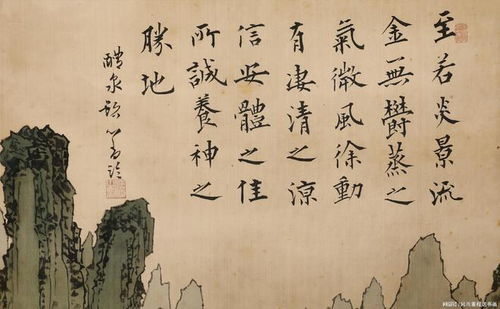 至若炎景流
金無欝蒸之
氣微風徐動
有淒清之涼
信安體之佳
所誠養神之
勝地
醴泉銘